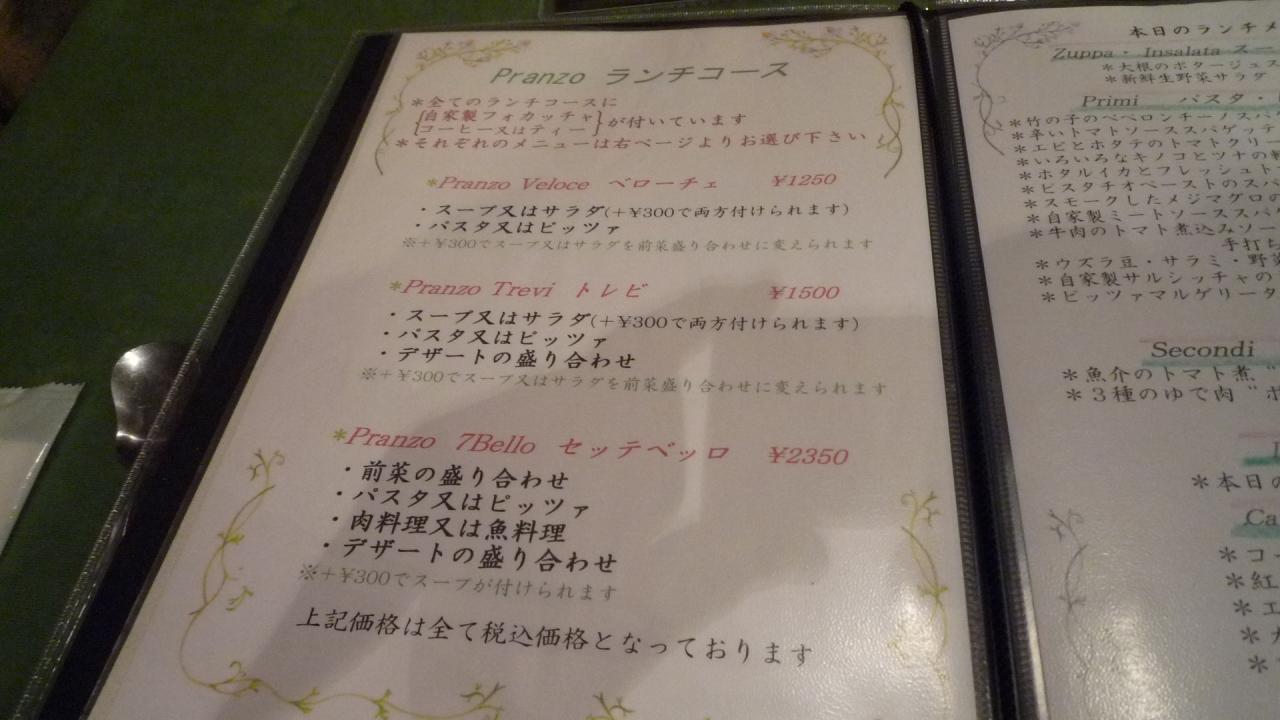 Pranzo ランチコース
＊全てのランチコースに
自家製フォカッチャ
コーヒー又はティー
が付いています
＊それぞれのメニューは右ページよりお選び下さい
＊Pranzo Veloce ベローチェ ¥1250
・スープ又はサラダ(＋¥300で両方付けられます)
・パスタ又はピッツァ
※＋¥300でスープ又はサラダを前菜盛り合わせに変えられます
＊Pranzo Trevi トレビ ¥1500
・スープ又はサラダ(＋¥300で両方付けられます)
・パスタ又はピッツァ
・デザートの盛り合わせ
※＋¥300でスープ又はサラダを前菜盛り合わせに変えられます
＊Pranzo 7Bello セッテベッロ ¥2350
・前菜の盛り合わせ
・パスタ又はピッツァ
・肉料理又は魚料理
・デザートの盛り合わせ
※＋¥300でスープが付けられます
上記価格は全て税込価格となっております
本日のランチメ
Zuppa・Insalata スー
＊大根のポタージュス
＊新鮮生野菜サラダ
Primi パスタ・
＊竹の子のペペロンチーノスパ
＊辛いトマトソーススパゲッテ
＊エビとホタテのトマトクリー
＊いろいろなキノコとツナの
＊ホタルイカとフレッシュト
＊ピスタチオペーストのス
＊スモークしたメジマグロの
＊自家製ミートソーススパ
＊牛肉のトマト煮込みソー
手打ち
＊ウズラ豆・サラミ・野菜
＊自家製サルシッチャの
＊ピッツァマルゲリータ
Secondi
＊魚介のトマト煮 "
＊3種のゆで肉 "ボ
＊本日の
Ca
＊コ
＊紅
＊エ